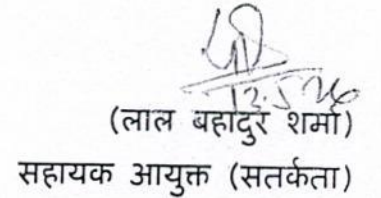 (लाल बहादुर शर्मा)
सहायक आयुक्त (सतर्कता)